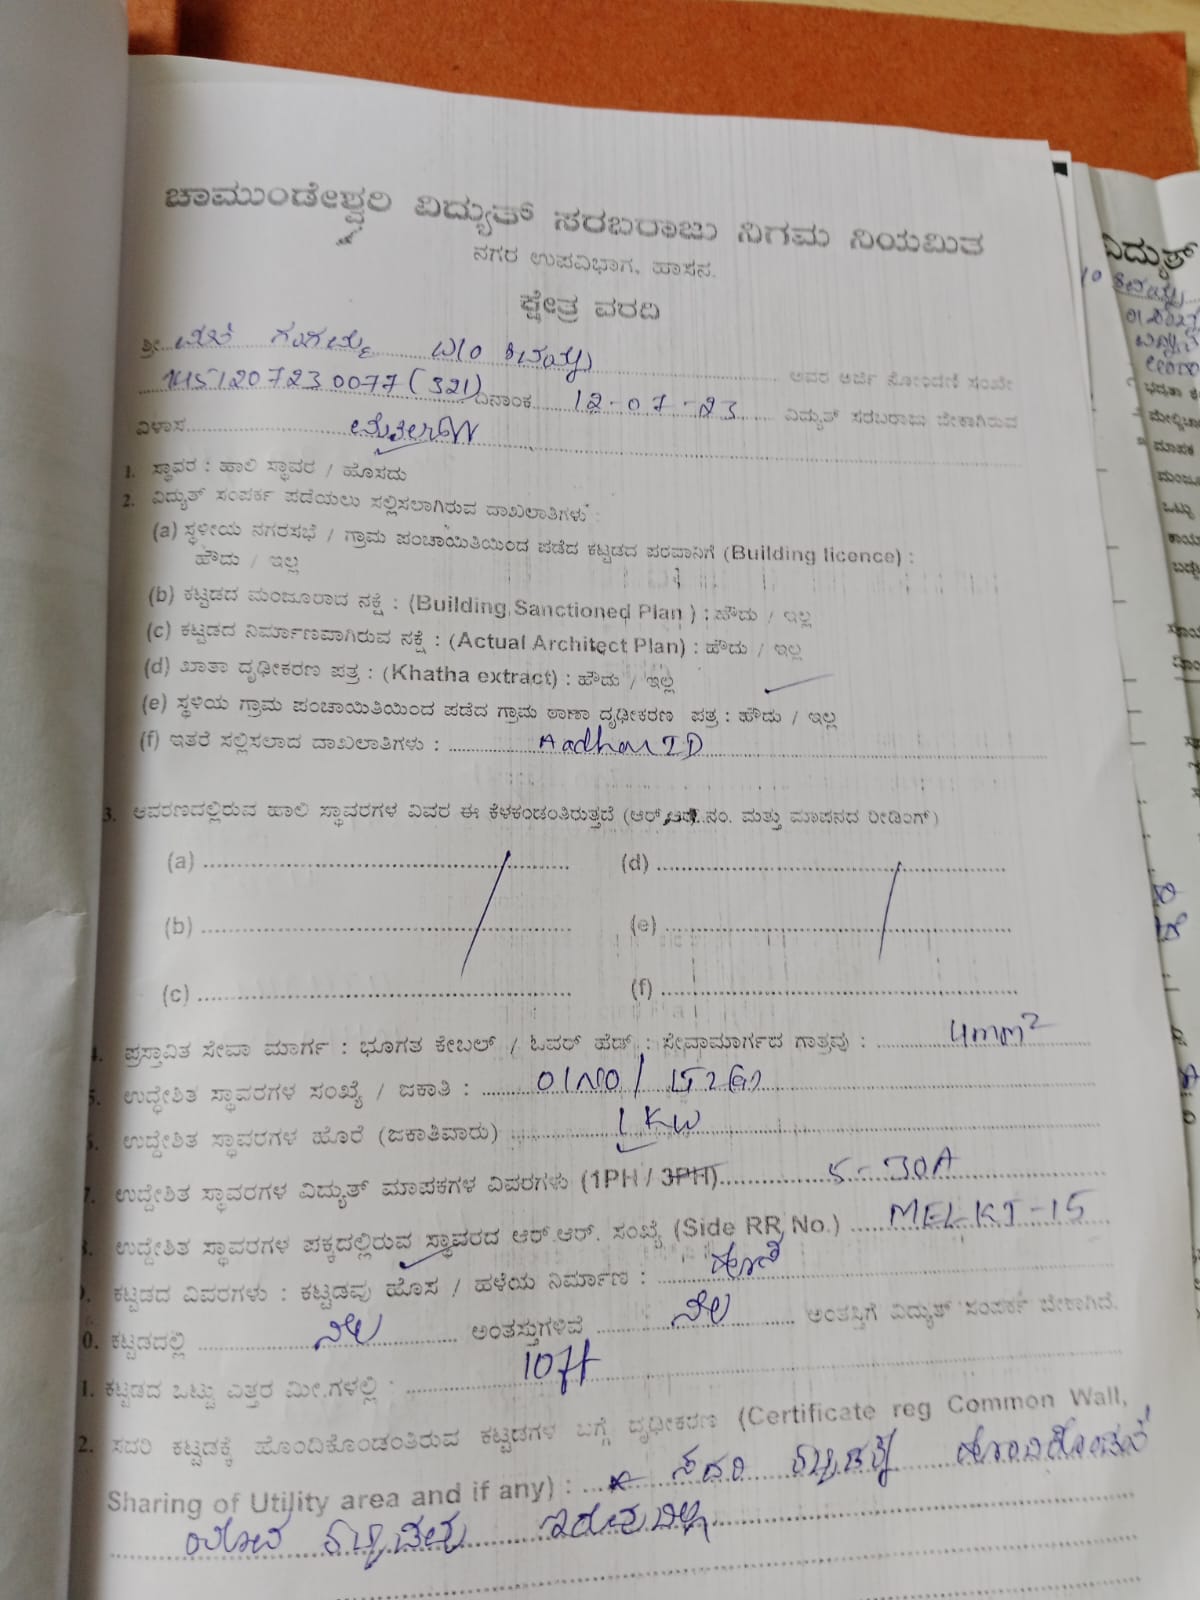 ಚಾಮುಂಡೇಶ್ವರಿ ವಿದ್ಯುತ್ ಸರಬರಾಜು ನಿಗಮ ನಿಯಮಿತ
ನಗರ ಉಪವಿಭಾಗ, ಹಾಸನ.
ಕ್ಷೇತ್ರ ವರದಿ
ಶ್ರೀ ಗಂಗಮ್ಮ W/O ಶಿವಯ್ಯ ಅವರ ಅರ್ಜಿ ನೋಂದಣಿ ಸಂಖ್ಯೇ
1207230077 (321) ದಿನಾಂಕ 12-07-23 ವಿದ್ಯುತ್ ಸರಬರಾಜು ಬೇಕಾಗಿರುವ
ವಿಳಾಸ
1. ಸ್ಥಾವರ : ಹಾಲಿ ಸ್ಥಾವರ / ಹೊಸದು
2. ವಿದ್ಯುತ್ ಸಂಪರ್ಕ ಪಡೆಯಲು ಸಲ್ಲಿಸಲಾಗಿರುವ ದಾಖಲಾತಿಗಳು :
(a) ಸ್ಥಳೀಯ ನಗರಸಭೆ / ಗ್ರಾಮ ಪಂಚಾಯಿತಿಯಿಂದ ಪಡೆದ ಕಟ್ಟಡದ ಪರವಾನಿಗೆ (Building licence) :
ಹೌದು / ಇಲ್ಲ
(b) ಕಟ್ಟಡದ ಮಂಜೂರಾದ ನಕ್ಷೆ : (Building Sanctioned Plan ) : ಹೌದು / ಇಲ್ಲ
(c) ಕಟ್ಟಡದ ನಿರ್ಮಾಣವಾಗಿರುವ ನಕ್ಷೆ : (Actual Architect Plan) : ಹೌದು / ಇಲ್ಲ
(d) ಖಾತಾ ದೃಢೀಕರಣ ಪತ್ರ : (Khatha extract) : ಹೌದು / ಇಲ್ಲ
(e) ಸ್ಥಳಿಯ ಗ್ರಾಮ ಪಂಚಾಯಿತಿಯಿಂದ ಪಡೆದ ಗ್ರಾಮ ಠಾಣಾ ದೃಢೀಕರಣ ಪತ್ರ : ಹೌದು / ಇಲ್ಲ
(f) ಇತರೆ ಸಲ್ಲಿಸಲಾದ ದಾಖಲಾತಿಗಳು : Aadhar ID
3. ಆವರಣದಲ್ಲಿರುವ ಹಾಲಿ ಸ್ಥಾವರಗಳ ವಿವರ ಈ ಕೆಳಕಂಡಂತಿರುತ್ತದೆ (ಆರ್.ಆರ್.ನಂ. ಮತ್ತು ಮಾಪನದ ರೀಡಿಂಗ್)
(a) (d)
(b) (e)
(c) (f)
4. ಪ್ರಸ್ತಾವಿತ ಸೇವಾ ಮಾರ್ಗ : ಭೂಗತ ಕೇಬಲ್ / ಓವರ್ ಹೆಡ್ : ಸೇವಾಮಾರ್ಗದ ಗಾತ್ರವು : 4mm²
5. ಉದ್ದೇಶಿತ ಸ್ಥಾವರಗಳ ಸಂಖ್ಯೆ / ಜಕಾತಿ : 01 NO /
6. ಉದ್ದೇಶಿತ ಸ್ಥಾವರಗಳ ಹೊರೆ (ಜಕಾತಿವಾರು) 1 KW
7. ಉದ್ದೇಶಿತ ಸ್ಥಾವರಗಳ ವಿದ್ಯುತ್ ಮಾಪಕಗಳ ವಿವರಗಳು (1PH / 3PH) 5-30A
8. ಉದ್ದೇಶಿತ ಸ್ಥಾವರಗಳ ಪಕ್ಕದಲ್ಲಿರುವ ಸ್ಥಾವರದ ಆರ್.ಆರ್. ಸಂಖ್ಯೆ (Side RR No.) MELKT-15
9. ಕಟ್ಟಡದ ವಿವರಗಳು : ಕಟ್ಟಡವು ಹೊಸ / ಹಳೆಯ ನಿರ್ಮಾಣ :
0. ಕಟ್ಟಡದಲ್ಲಿ ನೆಲ ಅಂತಸ್ತುಗಳಿವೆ ನೆಲ ಅಂತಸ್ತಿಗೆ ವಿದ್ಯುತ್ ಸಂಪರ್ಕ ಬೇಕಾಗಿದೆ.
1. ಕಟ್ಟಡದ ಒಟ್ಟು ಎತ್ತರ ಮೀ.ಗಳಲ್ಲಿ : 10ft
2. ಸದರಿ ಕಟ್ಟಡಕ್ಕೆ ಹೊಂದಿಕೊಂಡಂತಿರುವ ಕಟ್ಟಡಗಳ ಬಗ್ಗೆ ದೃಢೀಕರಣ (Certificate reg Common Wall,
Sharing of Utility area and if any) : * ಸದರಿ ಕಟ್ಟಡಕ್ಕೆ ಹೊಂದಿಕೊಂಡಂತೆ
ಯಾವ ಕಟ್ಟಡವು ಇರುವುದಿಲ್ಲ